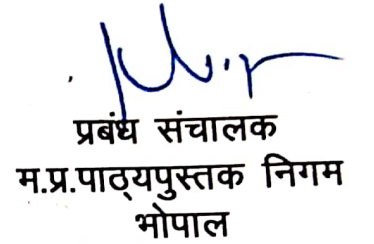 प्रबंध संचालक
म.प्र.पाठ्यपुस्तक निगम
भोपाल